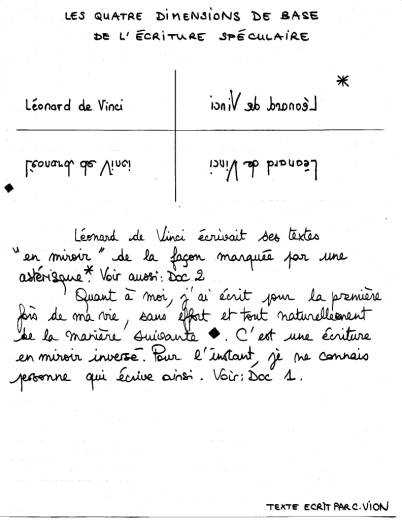 LES QUATRE DIMENSIONS DE BASE
DE L'ÉCRITURE SPÉCULAIRE
*
Léonard de Vinci Léonard de Vinci
Léonard de Vinci Léonard de Vinci
◆
Léonard de Vinci écrivait ses textes
"en miroir" de la façon marquée par une
astérisque* Voir aussi: Doc 2
Quant à moi, j'ai écrit pour la première
fois de ma vie, sans effort et tout naturellement
de la manière suivante ◆. C'est une écriture
en miroir inversé. Pour l'instant, je ne connais
personne qui écrive ainsi. Voir: Doc 1.
TEXTE ECRIT PAR C.VION